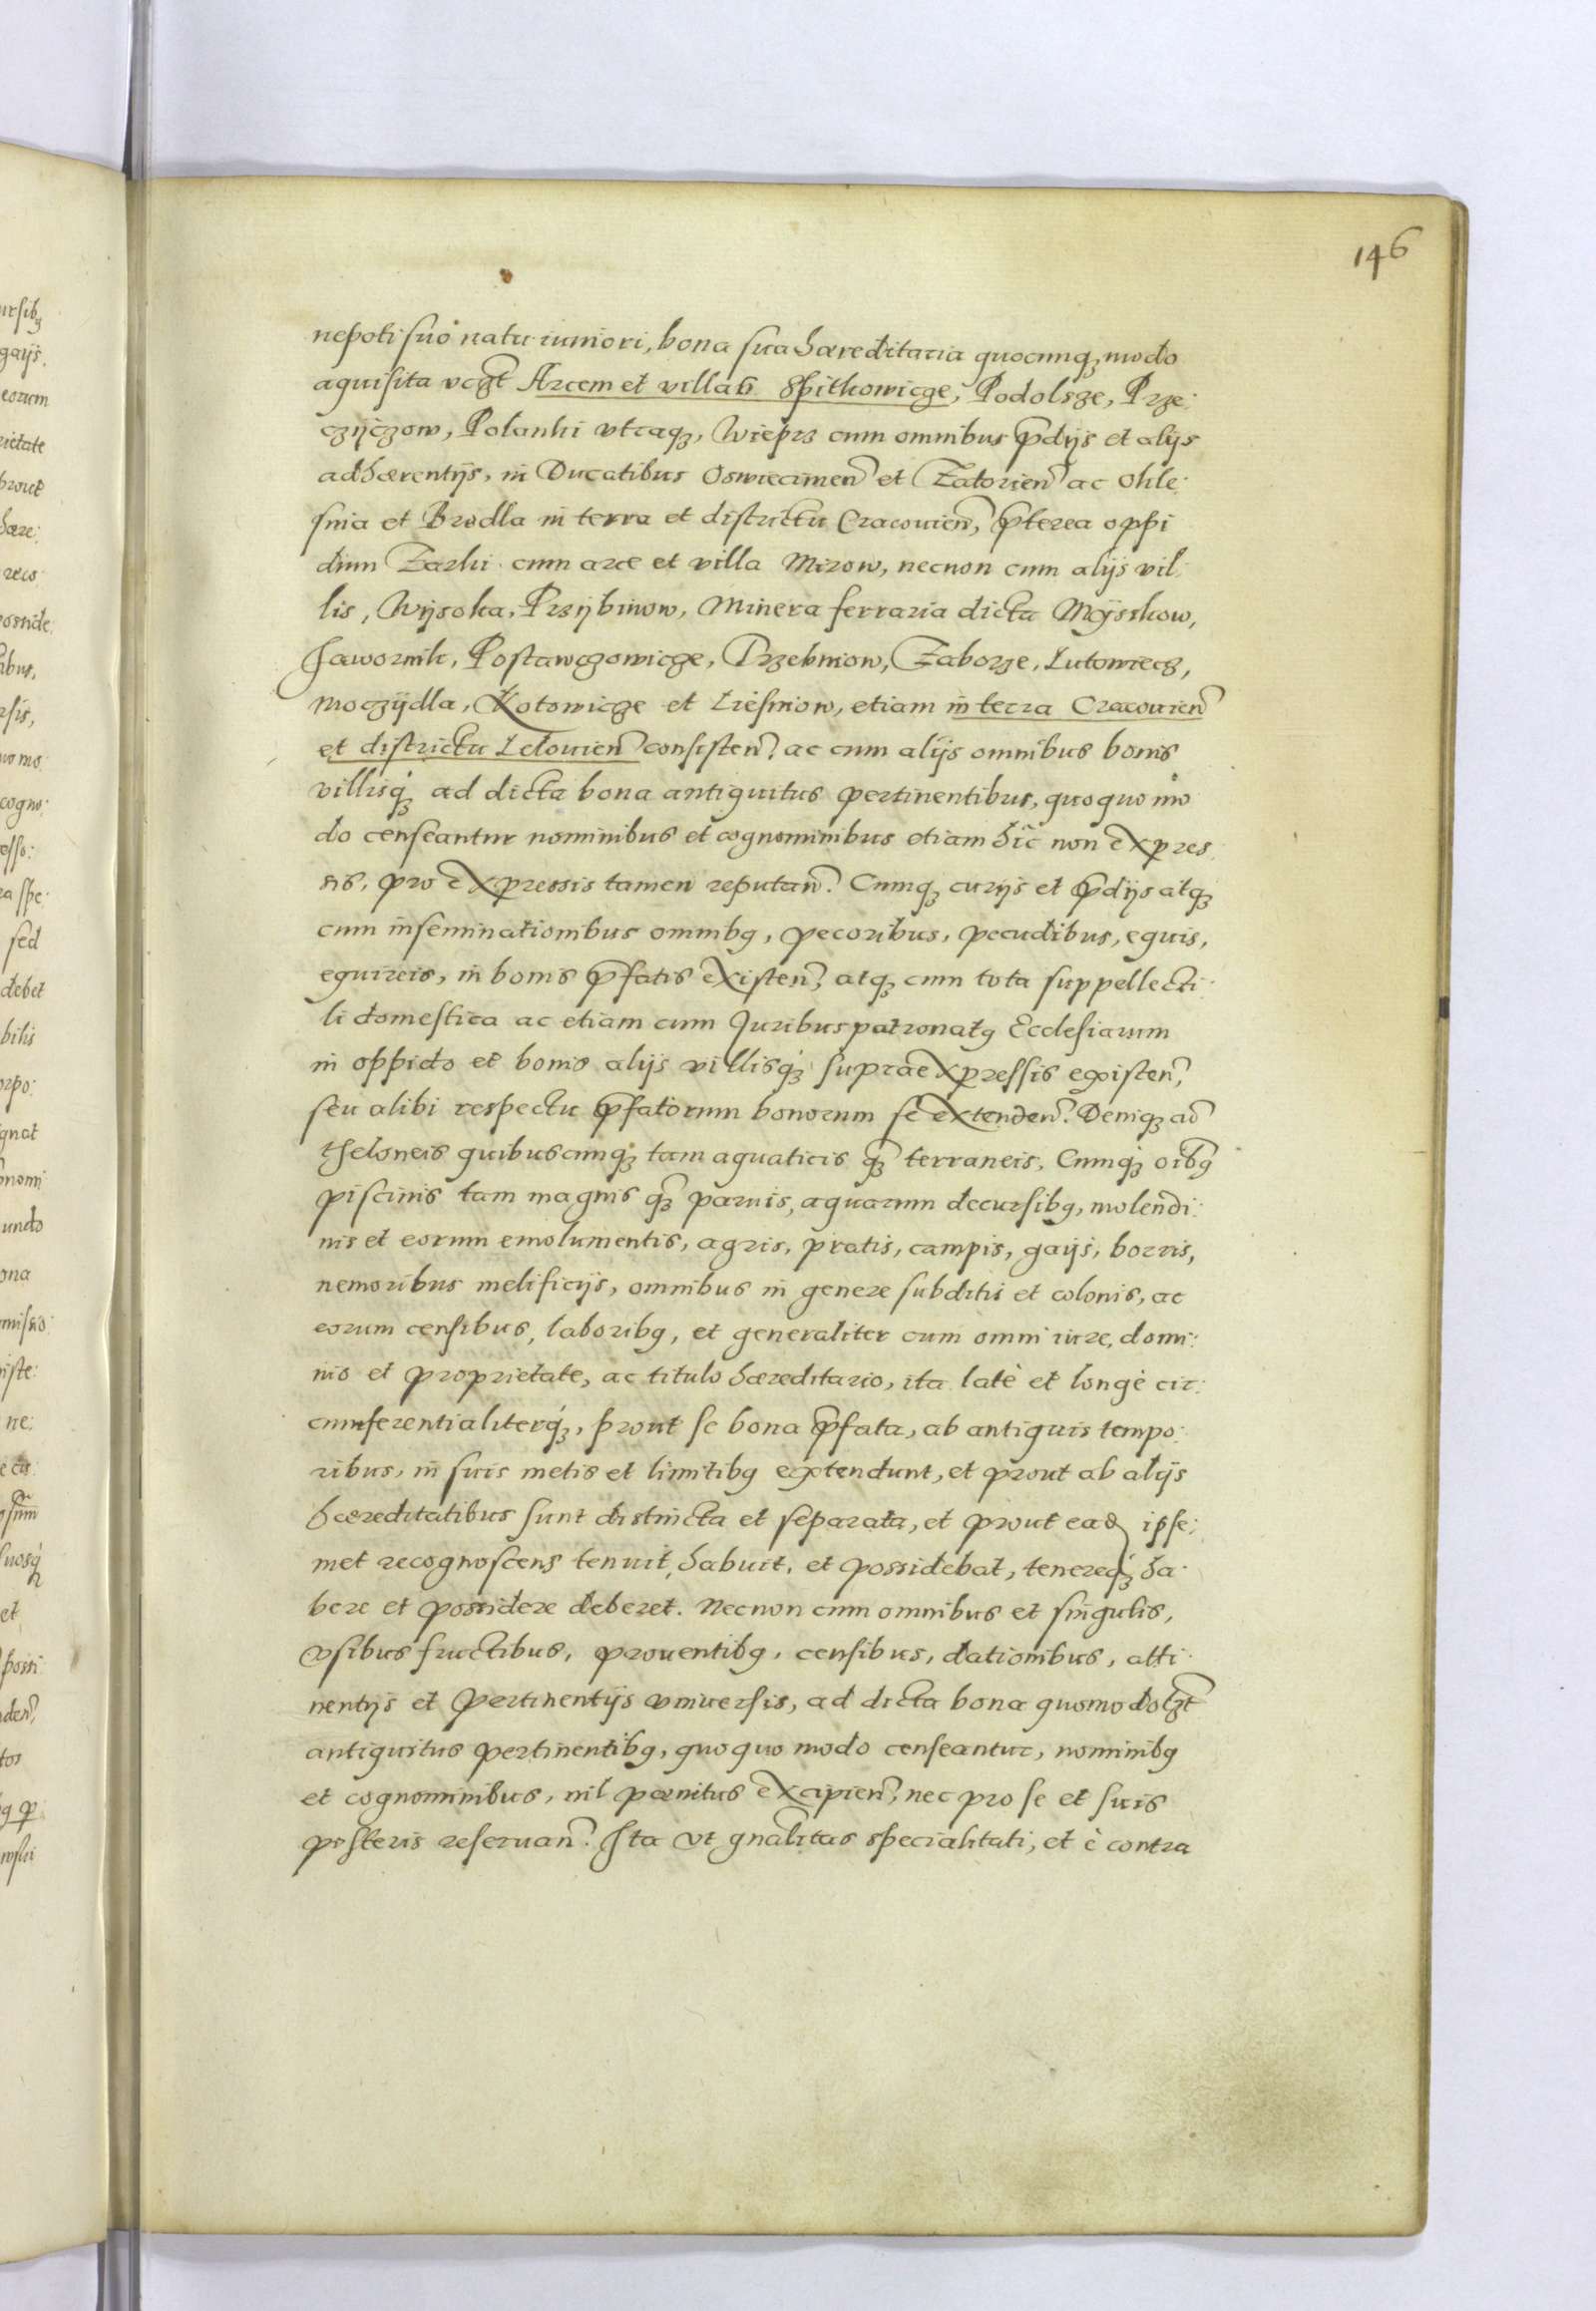 146
nepoti suo natu iuniori, bona sua hæreditaria quocunq3 modo
aquisita vcz̃t Arcem et villas Spitkowicze, Podolsze, Prze:
czijczow, Polanki vtraq3, Wieprz cum omnibus p̃dijs et alijs
adhærentijs, in Ducatibus Oswiecimen̄ et Zatorien̄ ac Ohle:
snia et Brodla in terra et districtu Cracouien̄, p̃terea oppi
dum Zarki cum arce et villa Mirow, necnon cum alijs vil:
lis, Wijsoka, Przijbinow, Minera ferraria dicta Mijsskow,
Jawornik, Postawczowicze, Przebniow, Zaborze, Lutowiecz,
Moczijdla, Kotowicze et Liesniow, etiam in terra Cracouien̄
et districtu Lelouien̄ consisten̄. ac cum alijs omnibus bonis
villisq3 ad dicta bona antiquitus pertinentibus, quoquo mo
do censeantur nominibus et cognominibus etiam hic non expres:
sis, pro expressis tamen reputan̄. Cumq3 curijs et p̃dijs atq3
cum inseminationibus omnibq, pecoribus, pecudibus, equis,
equireis, in bonis p̃fatis existen̄, atq3 cum tota suppellecti:
li domestica ac etiam cum Juribus patronatq Ecclesiarum
in oppido et bonis alijs villisq3 supraexpressis existen̄,
seu alibi respectu p̃fatorum bonorum se extenden̄. Deniq3 ac̄
theloneis quibuscunq3 tam aquaticis q̃3 terraneis, Cumq3 oībq
piscinis tam magnis q̃3 paruis, aquarum decursibq, molendi:
nis et eorum emolumentis, agris, pratis, campis, gaijs, borris,
nemoribus melificijs, omnibus in genere subditis et colonis, ac
eorum censibus, laboribq, et generaliter cum omni iure, domi:
nio et proprietate, ac titulo hæreditario, ita latè et longè cir:
cumferentialiterq3, prout se bona p̃fata, ab antiquis tempo:
ribus, in suis metis et limitibq extendunt, et prout ab alijs
hæreditatibus sunt distincta et separata, et prout ead ipse:
met recognoscens tenuit, habuit, et possidebat, tenereq3 ha:
bere et possidere deberet. Necnon cum omnibus et singulis,
vsibus fructibus, prouentibq, censibus, dationibus, atti:
nentijs et pertinentijs vniuersis, ad dicta bona quomodolz̃t
antiquitus pertinentibq, quoquo modo censeantur, nominibq
et cognominibus, nil pænitus excipien̄, nec pro se et suis
posteris reseruan̄. Ita vt gnālitas specialitati, et è contra